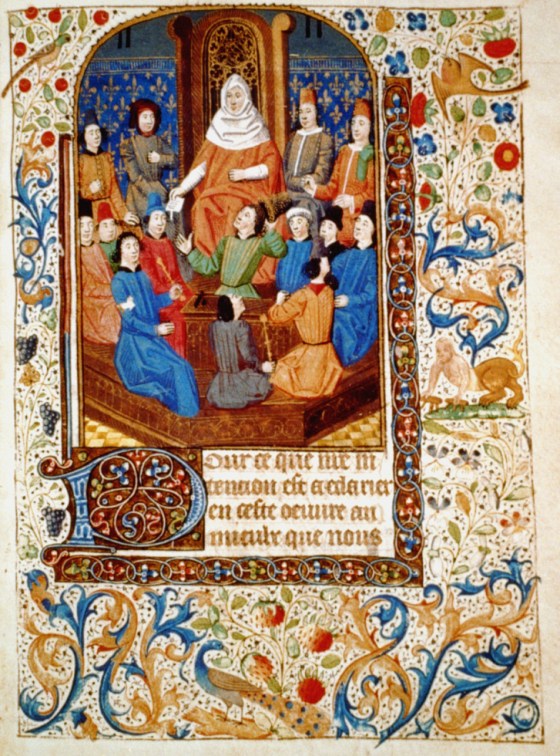 Pour ce que nre in
tencion est declarier
en ceste oeuvre au
mieulx que nous